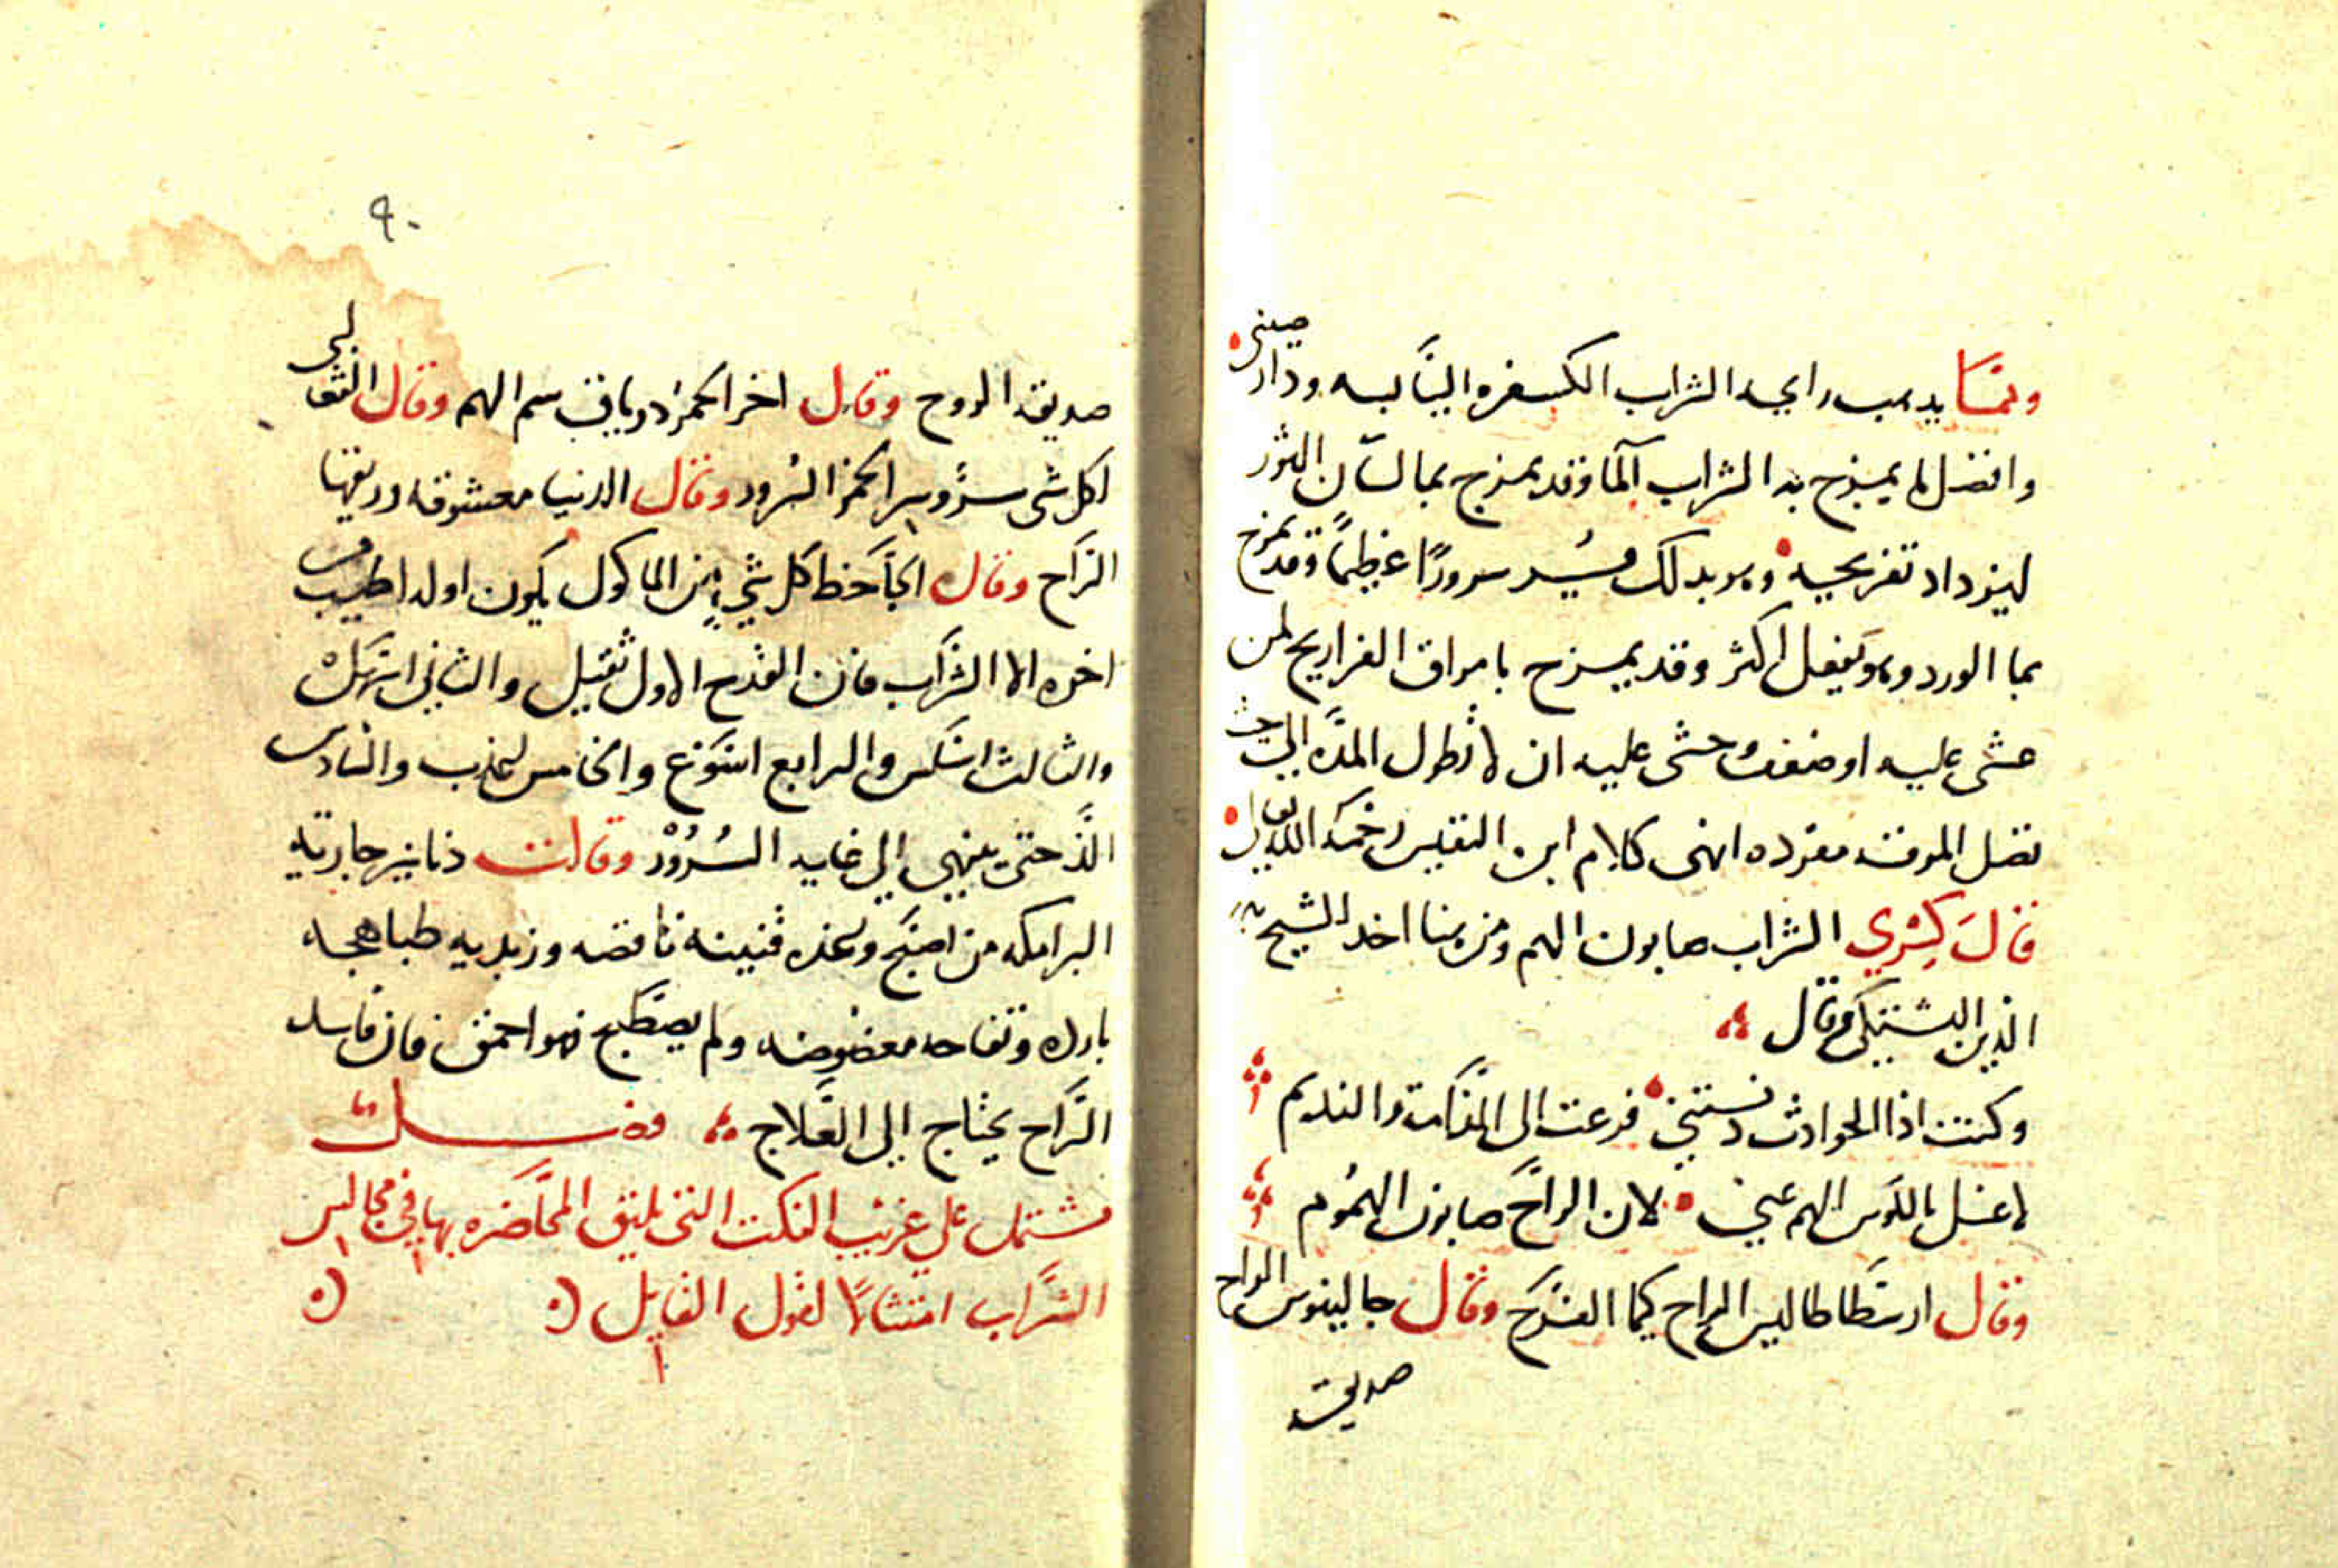 ومما يذهب رايحه الشراب الكسفره اليابسه ودار صينى
وافضل ما يمزج به الشراب الما وقد يمزج بما لسان الثور
ليزداد تفريحيه وهو بذلك يسر سرورًا عظيمًا وقد يمزج
بما الورد وهو يفعل اكثر وقد يمزج بامراق الفراريج لمن
عشى عليه او ضعف وخشى عليه ان لا تطول المده الى حيث
تصل المرقه مفرده انتهى كلام ابن النفيس رحمه الله تعالى
قال كسرى الشراب صابون الهم ومن هنا اخذ الشيخ
الدين البشتكى وقال
وكنت اذا الحوادث دنستنى فزعت الى المدامة والنديم
لاغسل بالكوس الهم عنى لان الراح صابون الهموم
وقال ارسطاطاليس الراح كيما الفرح وقال جالينوس الراح
صديقه
٩٠
صديقه الروح وقال اخر الخمر درياق سم الهم وقال الثعالبى
لكل شى سر وسر الخمر السرور وقال الدنيا معشوقه وريقها
الراح وقال الجاحظ كل شيء من الماكول يكون اوله اطيب من
اخره الا الشراب فان القدح الاول ثقيل والثانى اسهل
والثالث اسلس والرابع اسوغ والخامس اعذب والسادس
الذ حتى ينتهى الى غايه السرور وقالت دنانير جاريه
البرامكه من اصبح وعنده قنينه ناقصه وزبديه طباهجه
بارده وتفاحه معضوضه ولم يصطبح فهو احمق فان فاسد
الراح يحتاج الى العلاج فصل
مشتمل على غريب النكت التى يليق المحاضره بها فى مجالس
الشراب امتثالًا لقول القايل